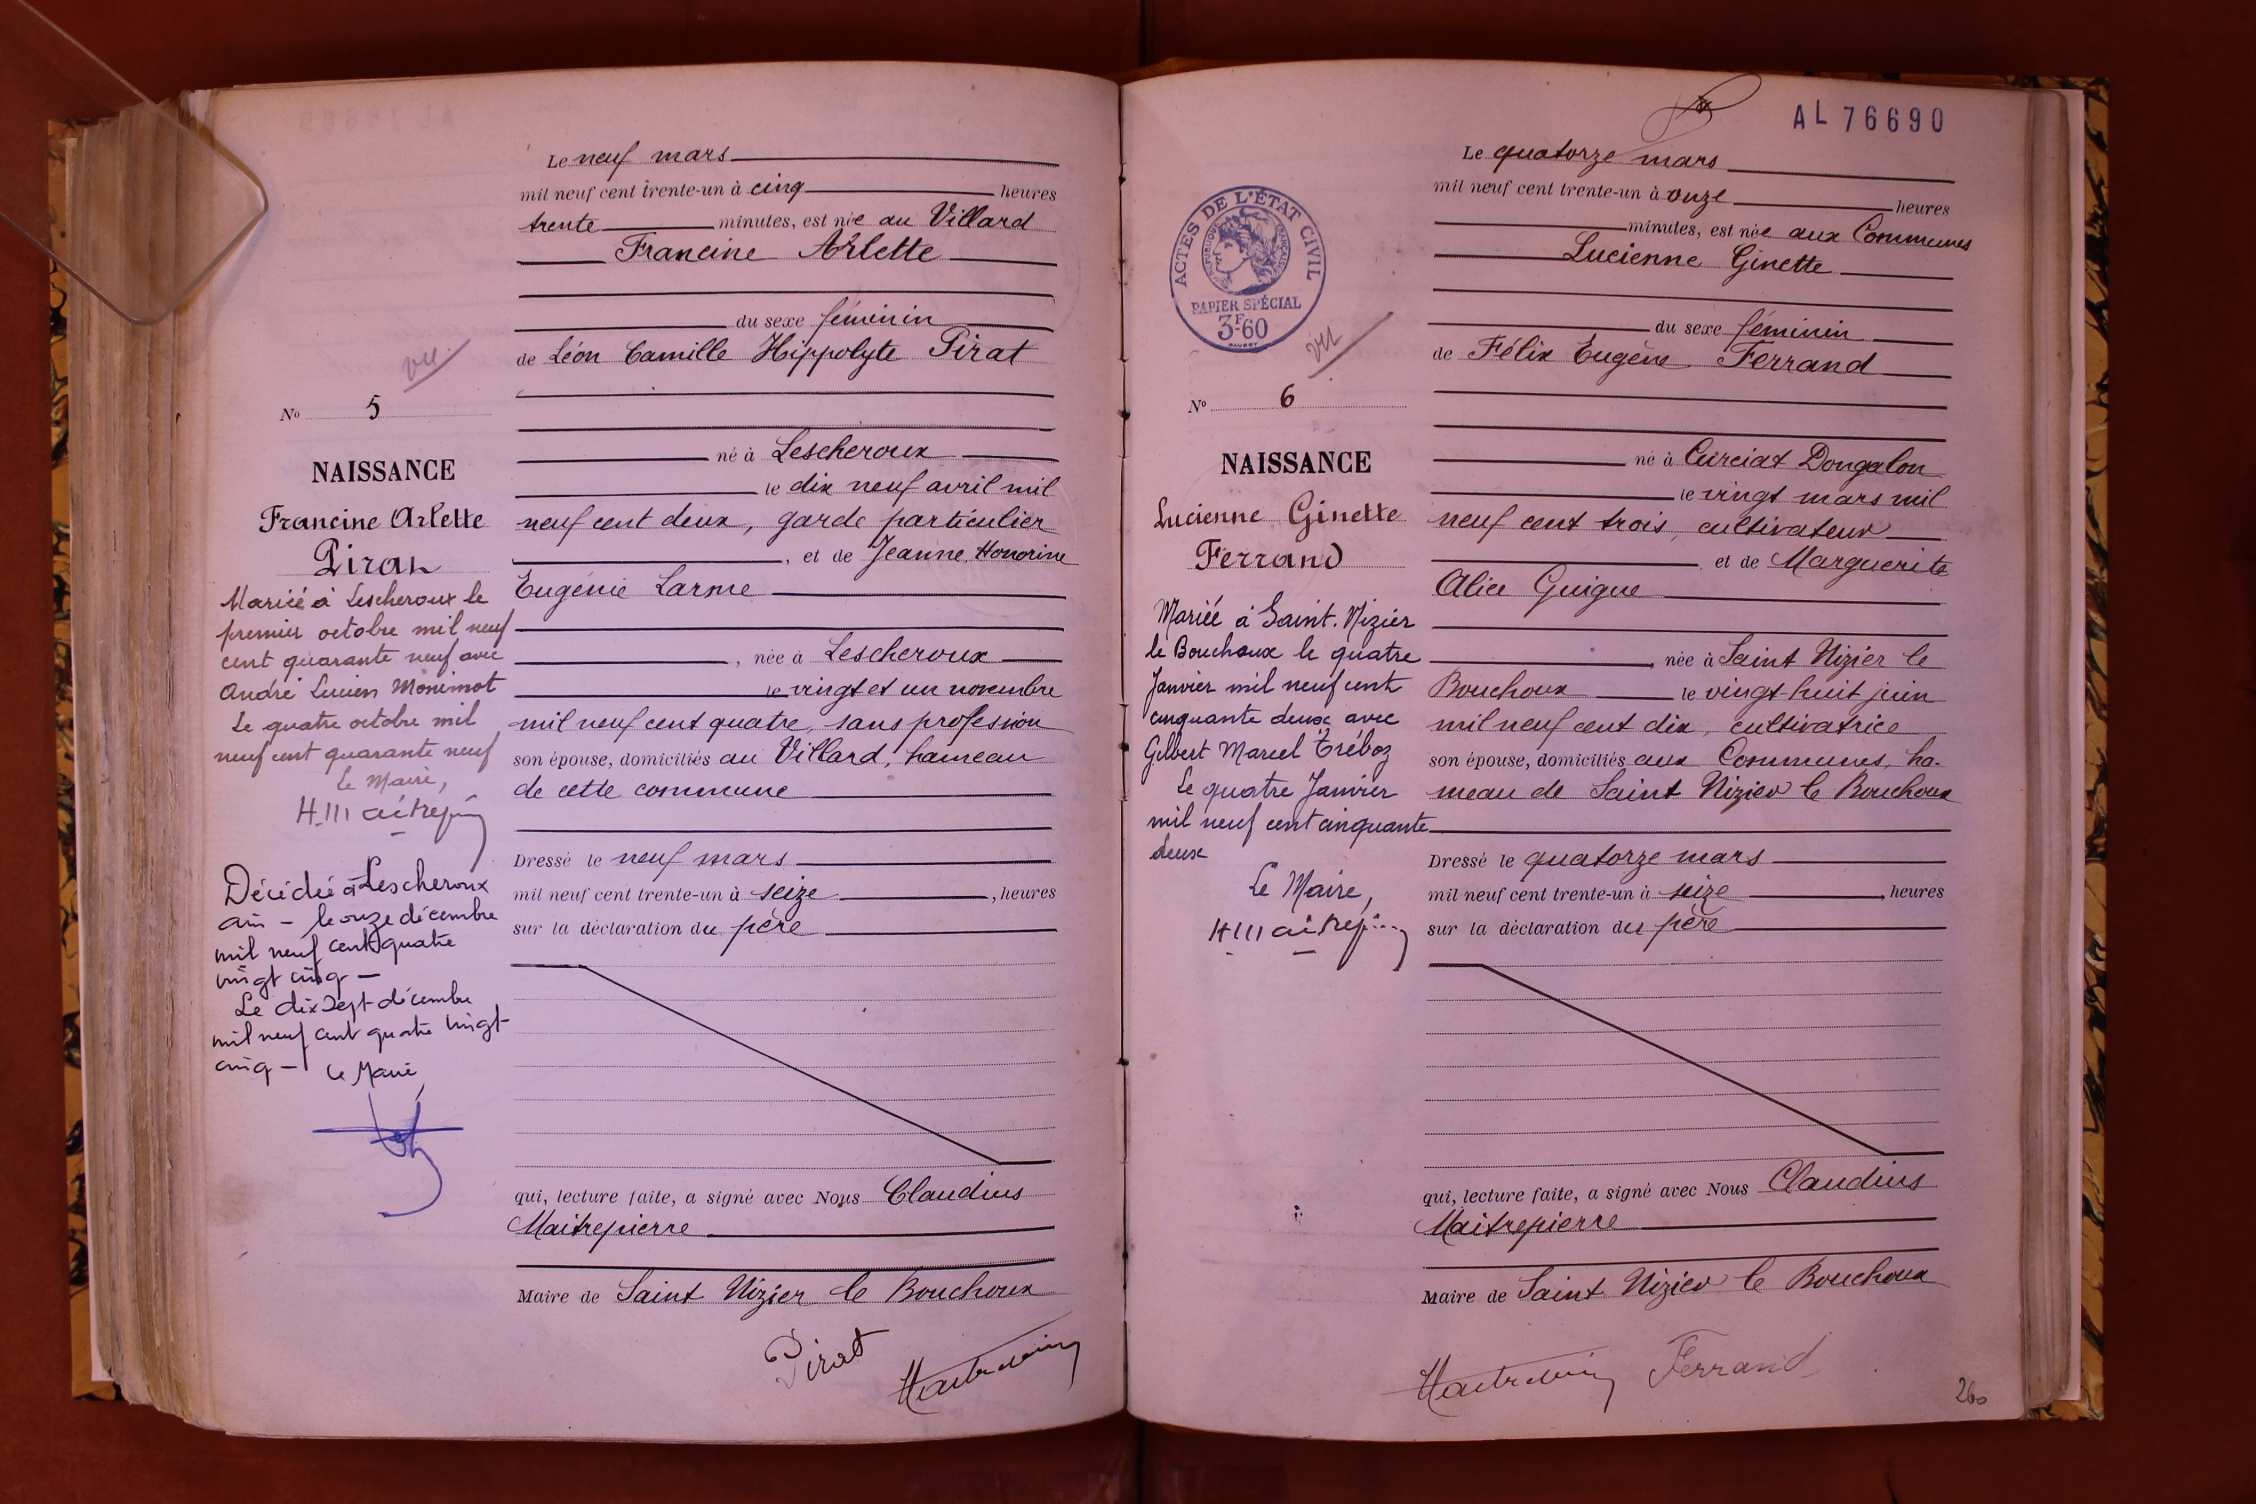 Le neuf mars
mil neuf cent trente-un à cinq heures
trente minutes, est née au Villard
Francine Arlette
du sexe féminin
de Léon Camille Hippolyte Pirat
né à Lescheroux
le dix neuf avril mil
neuf cent deux, garde particulier
, et de Jeanne Honorine
Eugénie Larme
, née à Lescheroux
le vingt et un novembre
mil neuf cent quatre, sans profession
son épouse, domiciliés au Villard, hameau
de cette commune
Dressé le neuf mars
mil neuf cent trente-un à seize , heures
sur la déclaration du père
qui, lecture faite, a signé avec Nous Claudius
Maitrepierre
Maire de Saint Nizier le Bouchoux
Pirat
vu
No 5
NAISSANCE
Francine Arlette
Pirat
Mariée à Lescheroux le
premier octobre mil neuf
cent quarante neuf avec
André Lucien Monimot
Le quatre octobre mil
neuf cent quarante neuf
Le Maire,
Décédée à Lescheroux
Ain - le onze décembre
mil neuf cent quatre
vingt cinq -
Le dix sept décembre
mil neuf cent quatre vingt
cinq - Le Maire
AL 76690
ACTES DE L'ÉTAT CIVIL
RÉPUBLIQUE FRANÇAISE
PAPIER SPÉCIAL
3F60
vu
No 6
NAISSANCE
Lucienne Ginette
Ferrand
Mariée à Saint. Nizier
le Bouchoux le quatre
Janvier mil neuf cent
cinquante deux avec
Gilbert Marcel Tréboz
Le quatre Janvier
mil neuf cent cinquante
deux
Le Maire,
Le quatorze mars
mil neuf cent trente-un à onze heures
minutes, est née aux Communes
Lucienne Ginette
du sexe féminin
de Félix Eugène Ferrand
né à Curciat Dongalon
le vingt mars mil
neuf cent trois, cultivateur
et de Marguerite
Alice Guigue
, née à Saint Nizier le
Bouchoux le vingt-huit juin
mil neuf cent dix, cultivatrice
son épouse, domiciliés aux Communes, ha-
meau de Saint Nizier le Bouchoux
Dressé le quatorze mars
mil neuf cent trente-un à seize , heures
sur la déclaration du père
qui, lecture faite, a signé avec Nous Claudius
Maitrepierre
Maire de Saint Nizier le Bouchoux
Ferrand
260